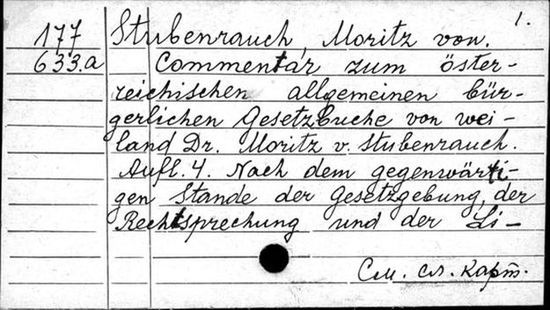 1.
177 Stubenrauch, Moritz von.
633.a Commentar zum öster-
reichischen allgemeinen bür-
gerlichen Gesetzbuche von wei-
land Dr. Moritz v. Stubenrauch.
Aufl. 4. Nach dem gegenwärti-
gen Stande der Gesetzgebung, der
Rechtsprechung und der Li-
См. сл. карт.